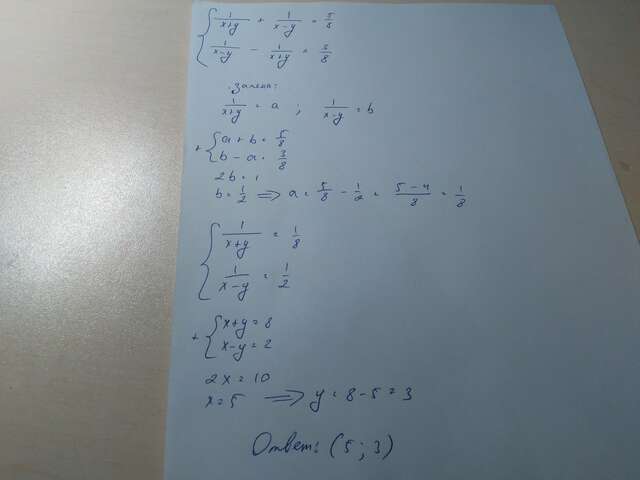 1/(x+y) + 1/(x-y) = 5/8
1/(x-y) - 1/(x+y) = 3/8
Замена:
1/(x+y) = a ; 1/(x-y) = b
+ { a + b = 5/8
b - a = 3/8
2b = 1
b = 1/2 => a = 5/8 - 1/2 = (5-4)/8 = 1/8
{ 1/(x+y) = 1/8
1/(x-y) = 1/2
+ { x+y = 8
x-y = 2
2x = 10
x = 5 => y = 8 - 5 = 3
Ответ: (5 ; 3)